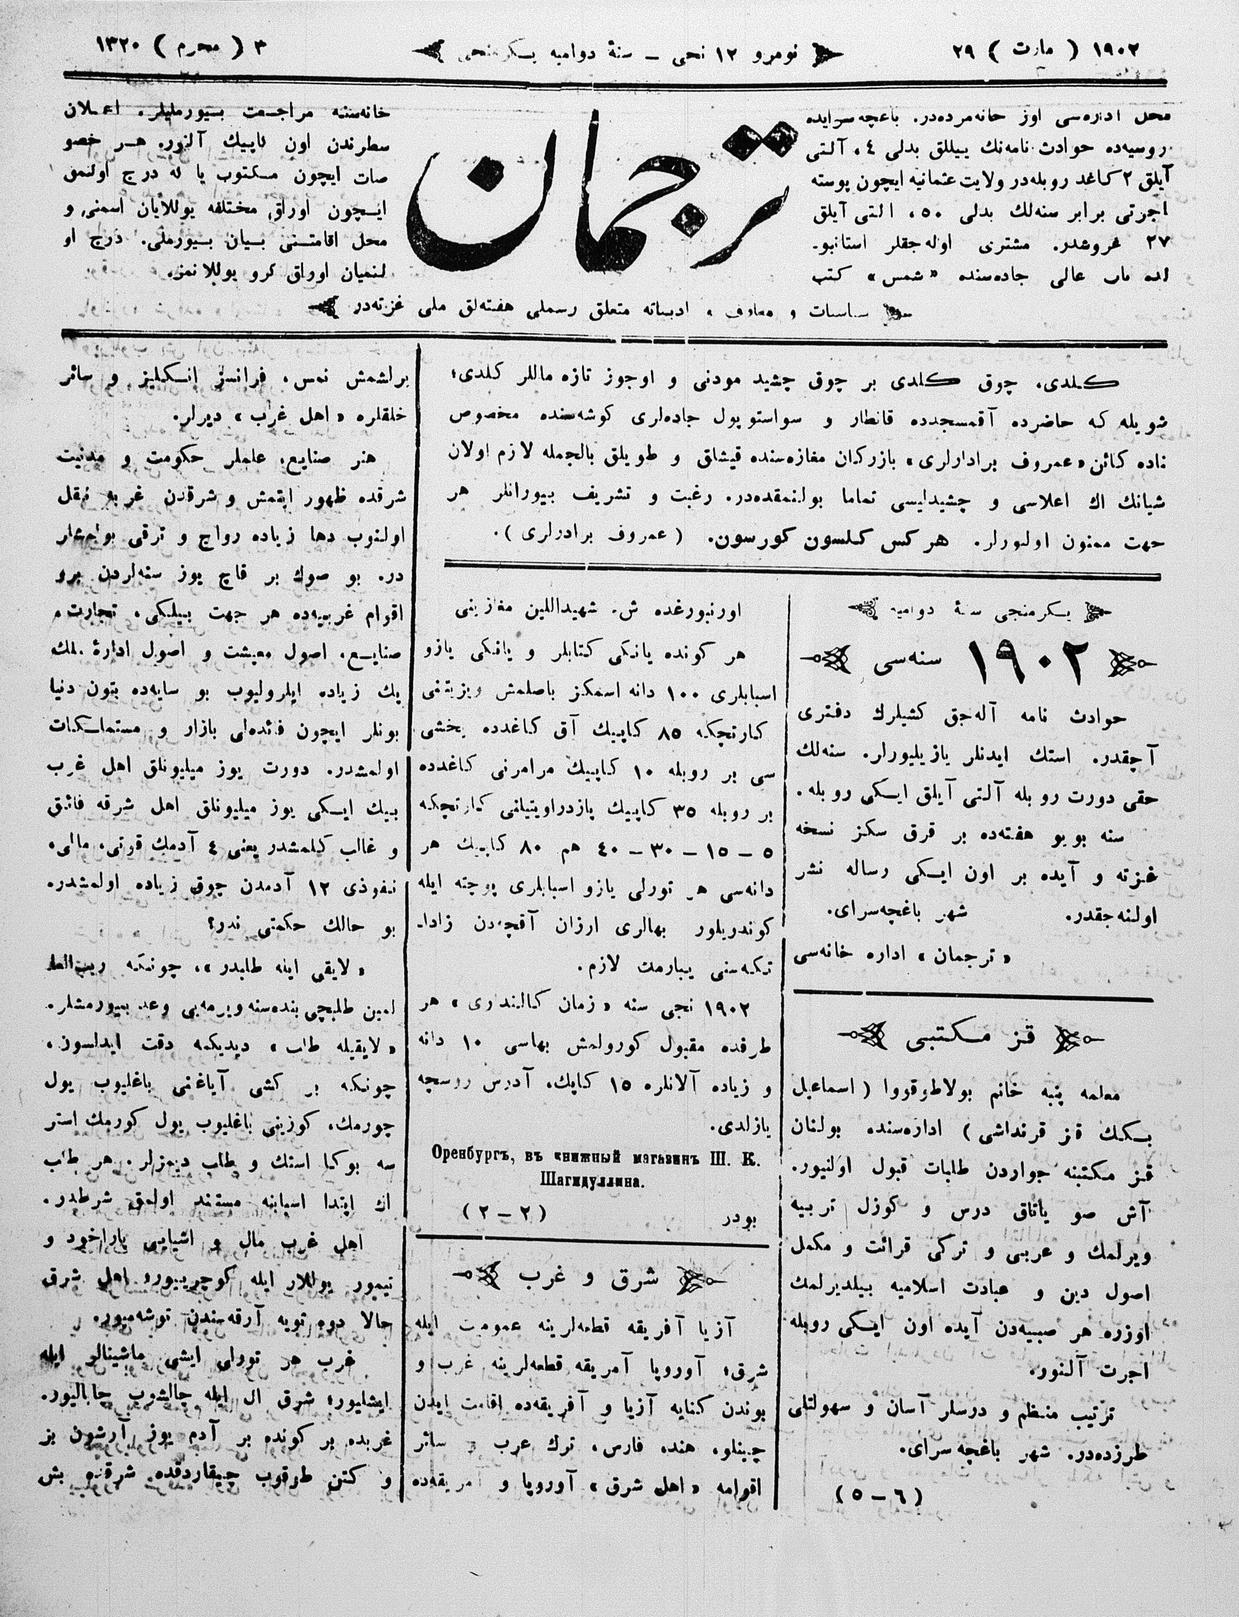 ١٩٠٢ ( مارت ) ٢٩
نومرو ١٢ نجى — سنهٔ دواميه يكرمنجى
٣ ( محرم ) ١٣٢٠
محل اداره‌سى اوز خانه‌مزده‌در. باغچه‌سرايده
روسيه‌ده حوادث نامه‌نك ييللق بدلى ٤، آلتى
آيلق ٢ كاغد روبله‌در ولايت عثمانيه ايچون پوسته
اجرتى برابر سنه‌لك بدلى ٥٠، التى آيلق
٢٧ غروشدر. مشترى اوله‌جقلر استانبو-
لده باب عالى جاده‌سنده «شمس» كتب
ترجمان
خانه‌سنه مراجعت بيورمليلر. اعلان
سطرندن اون كاپيك آلنور. هر خصو
صات ايچون مكتوب يا له درج اولنمق
ايچون اوراق مختلفه يوللايان اسمنى و
محل اقامتنى بيان بيورملى. درج او
لنميان اوراق كرو يوللانمز.
سياسات و معارف و ادبياته متعلق رسملى هفته‌لق ملى غزته‌در
كلدى، چوق كلدى بر چوق چشيد مودنى و اوجوز تازه ماللر كلدى؛
شويله كه حاضرده آقمسجدده قانطار و سواستوپول جاده‌لرى كوشه‌سنده مخصوص
ناده كائن «عمروف برادارلرى» بازركان مغازه‌سنده قيشلق و طويلق بالجمله لازم اولان
شيانك اك اعلاسى و چشيدليسى تماما بولنمقده‌در. رغبت و تشريف بيورانلر هر
جهت ممنون اولورلر. هركس كلسون كورسون. ( عمروف برادرلرى ).
يكرمنجى سنهٔ دواميه
١٩٠٢ سنه‌سى
حوادث نامه آله‌جق كشيلرك دفترى
آچقدر. استك ايدنلر يازيليورلر. سنه‌لك
حقى دورت روبله آلتى آيلق ايكى روبله.
سنه بويو هفته‌ده بر قرق سكز نسخه
غزته و آيده بر اون ايكى رساله نشر
اولنه‌جقدر. شهر باغچه‌سراى.
«ترجمان» اداره خانه‌سى
قز مكتبى
معلمه پنبه خانم بولاطوقووا (اسماعيل
بكك قز قرنداشى) اداره‌سنده بولنان
قز مكتبنه جواردن طلبات قبول اولنيور.
آش صو ياتاق درس و كوزل تربيه
ويرلمك و عربى و تركى قرائت و مكمل
اصول دين و عبادت اسلاميه بيلديرلمك
اوزره هر صبيه‌دن آيده اون ايكى روبله
اجرت آلنور.
ترتيب منظم و درسلر آسان و سهولتلى
طرزده‌در. شهر باغچه‌سراى.
(٦ — ٥)
اورنبورغده ش. شهيداللين مغازينى
هر كونده يانكى كتابلر و يانكى يازو
اسبابلرى ١٠٠ دانه اسمكز باصلمش ويزيتنى
كارتچكه ٨٥ كاپيك آق كاغدده يخشى
سى بر روبله ١٠ كاپيك مرامرنى كاغدده
بر روبله ٣٥ كاپيك پازدراويتيلنى كارتچكه
٥ — ١٥ — ٣٠ — ٤٠ هم ٨٠ كاپيك هر
دانه‌سى هر تورلى يازو اسبابلرى پوچته ايله
كوندريلور بهالرى ارزان آقچه‌دن زادا-
تكه‌سنى يبارمك لازم.
١٩٠٢ نجى سنه «زمان كالندارى» هر
طرفده مقبول كورولمش بهاسى ١٠ دانه
و زياده آلانلره ١٥ كاپك. آدرس روسچه
يازلدى.
Оренбургъ, въ книжный магазинъ Ш. К.
Шагидуллина.
بودر (٢ — ٢)
شرق و غرب
آزيا آفريقه قطعه‌لرينه عموميت ايله
شرق؛ آوروپا آمريقه قطعه‌لرينه غرب و
بوندن كنايه آزيا و آفريقه‌ده اقامت ايدن
چينلو، هند، فارس، ترك عرب و سائر
اقوامه «اهل شرق» آوروپا و آمريقه‌ده
برلشمش نمس، فرانسز انكليز و سائر
خلقلره «اهل غرب» ديرلر.
هنر صنايع، علملر حكومت و مدنيت
شرقده ظهور ايتمش و شرقدن غربه نقل
اولنوب دها زياده رواج و ترقى بولمشلر
در. بو صوك بر قاچ يوز سنه‌لردن برو
اقوام غربيه‌ده هر جهت بيليكى، تجارت و
صنايع، اصول معيشت و اصول ادارهٔ ملك
پك زياده ايلروليوب بو سايه‌ده بتون دنيا
بونلر ايچون فائده‌لى بازار و مستملكات
اولمشدر. دورت يوز ميليونلق اهل غرب
بيك ايكى يوز ميليونلق اهل شرقه فائق
و غالب كلمشدر يعنى ٤ آدمك قوتى، مالى،
نفوذى ١٢ آدمدن چوق زياده اولمشدر.
بو حالك حكمتى ندر؟
«لايقى ايله طلبدر»، چونكه رب العا
لمين طلبچى بنده‌سنه ويرمه‌يى وعد بيورمشلر.
«لايقيله طلب» ديديكمه دقت ايدلسون،
چونكه بر كشى آياغنى باغليوب يول
چورمك، كوزينى باغليوب يول كورمك استر
سه بوكا استك و طلب ديمزلر. هر طلب
اك ابتدا اسبابنه مستند اولمق شرطدر.
اهل غرب مال و اشيايى پاراخود و
تيمور يوللار ايله كوچرييور، اهل شرق
حالا دوه توپه آرقه‌سندن توشه‌ميور.
غرب هر تورلى ايشى ماشينالر ايله
ايشليور؛ شرق ال ايله چالشوب چاباليور.
غربده بر كونده بر آدم يوز آرشون بز
و كتن طوقوب چيقاردقده شرقده بش